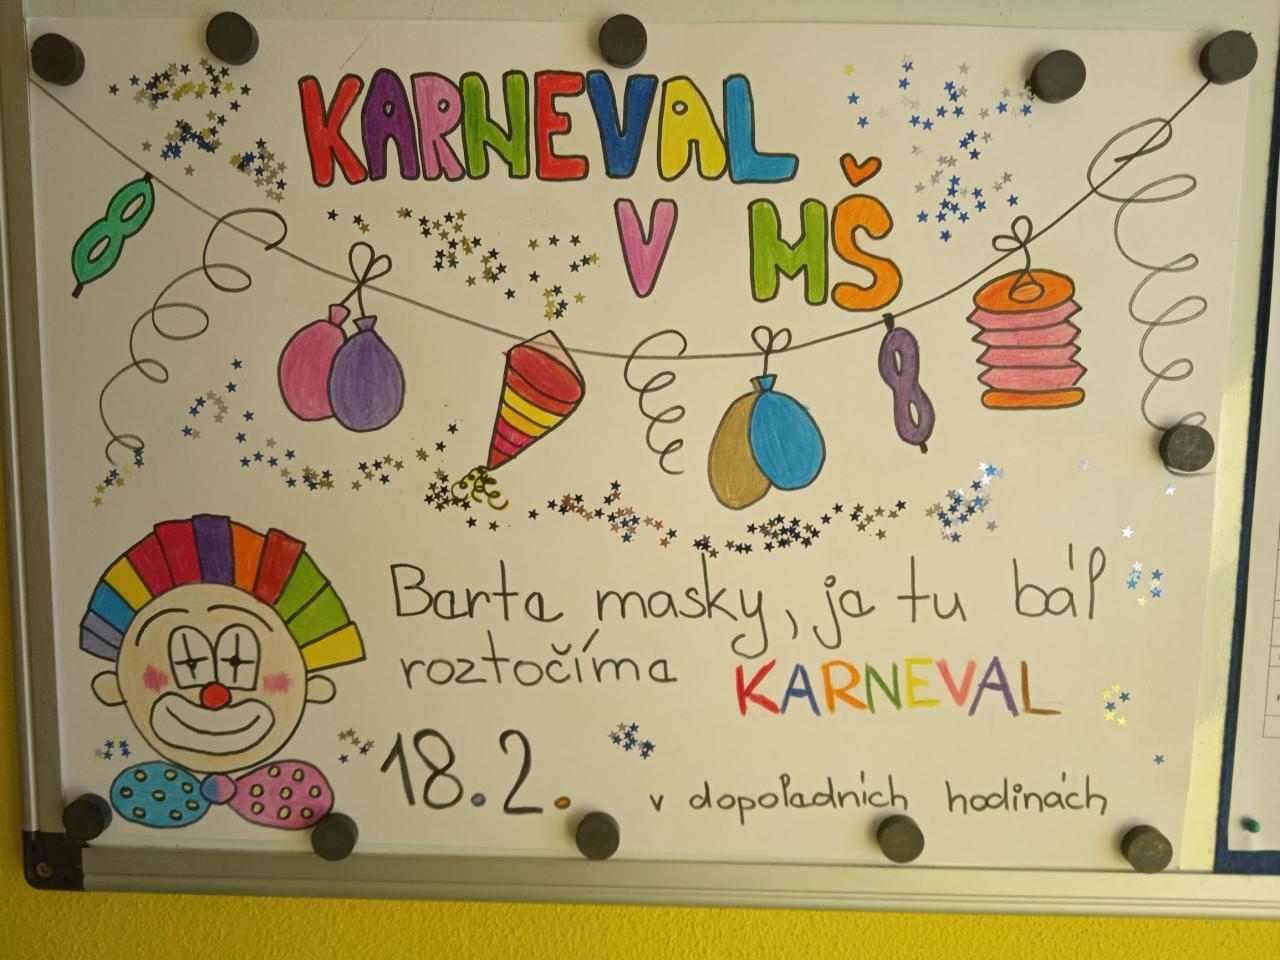 KARNEVAL
V MŠ
Barta masky, ja tu bál
roztočíma KARNEVAL
18.2. v dopoladních hodinách